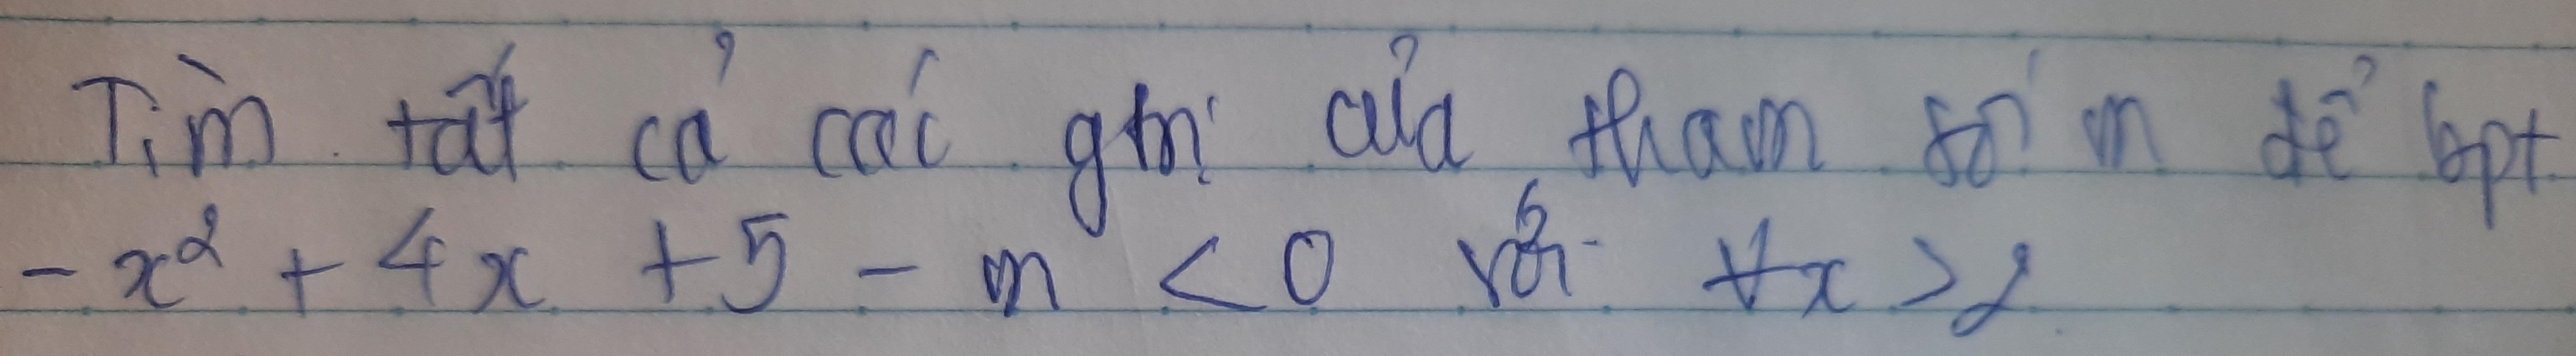 Tìm tất cả các gtrị của tham số m để bpt
-x² + 4x + 5 - m < 0 với ∀x > 2